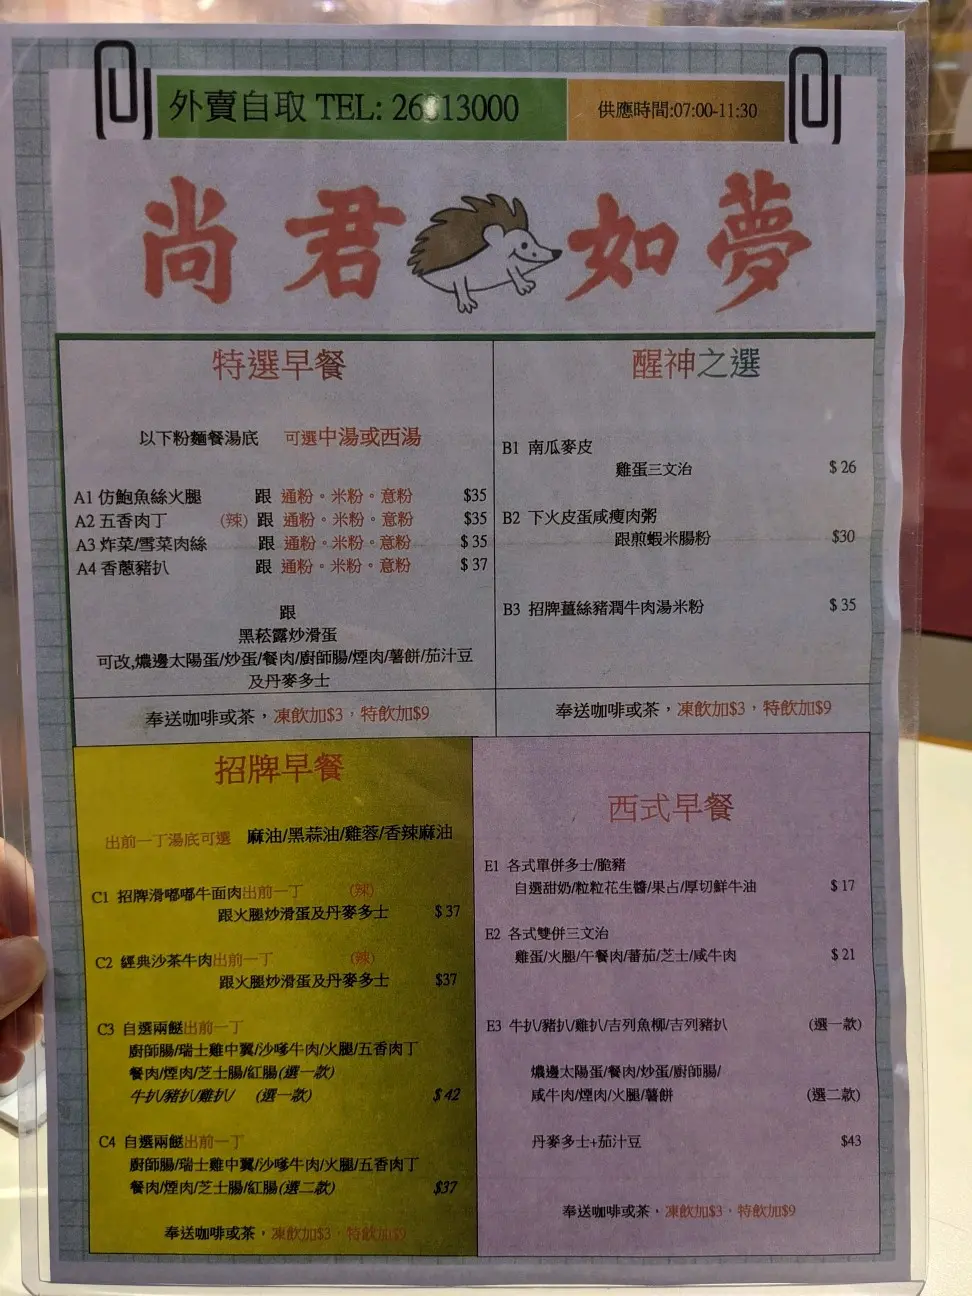 外賣自取 TEL: 26 13000
供應時間:07:00-11:30
尚君如夢
特選早餐
以下粉麵餐湯底 可選中湯或西湯
A1 仿鮑魚絲火腿 跟 通粉。米粉。意粉 $35
A2 五香肉丁 (辣) 跟 通粉。米粉。意粉 $35
A3 炸菜/雪菜肉絲 跟 通粉。米粉。意粉 $ 35
A4 香蔥豬扒 跟 通粉。米粉。意粉 $ 37
跟
黑菘露炒滑蛋
可改,燶邊太陽蛋/炒蛋/餐肉/廚師腸/煙肉/薯餅/茄汁豆
及丹麥多士
奉送咖啡或茶，凍飲加$3，特飲加$9
醒神之選
B1 南瓜麥皮
雞蛋三文治 $ 26
B2 下火皮蛋咸瘦肉粥
跟煎蝦米腸粉 $30
B3 招牌薑絲豬潤牛肉湯米粉 $ 35
奉送咖啡或茶，凍飲加$3，特飲加$9
招牌早餐
出前一丁湯底可選 麻油/黑蒜油/雞蓉/香辣麻油
C1 招牌滑嘟嘟牛面肉出前一丁 (辣)
跟火腿炒滑蛋及丹麥多士 $ 37
C2 經典沙茶牛肉出前一丁 (辣)
跟火腿炒滑蛋及丹麥多士 $37
C3 自選兩餸出前一丁
廚師腸/瑞士雞中翼/沙嗲牛肉/火腿/五香肉丁
餐肉/煙肉/芝士腸/紅腸(選一款)
牛扒/豬扒/雞扒/ (選一款) $ 42
C4 自選兩餸出前一丁
廚師腸/瑞士雞中翼/沙嗲牛肉/火腿/五香肉丁
餐肉/煙肉/芝士腸/紅腸(選二款) $37
奉送咖啡或茶，凍飲加$3，特飲加$9
西式早餐
E1 各式單併多士/脆豬
自選甜奶/粒粒花生醬/果占/厚切鮮牛油 $ 17
E2 各式雙併三文治
雞蛋/火腿/午餐肉/蕃茄/芝士/咸牛肉 $ 21
E3 牛扒/豬扒/雞扒/吉列魚柳/吉列豬扒 (選一款)
燶邊太陽蛋/餐肉/炒蛋/廚師腸/
咸牛肉/煙肉/火腿/薯餅 (選二款)
丹麥多士+茄汁豆 $43
奉送咖啡或茶，凍飲加$3，特飲加$9